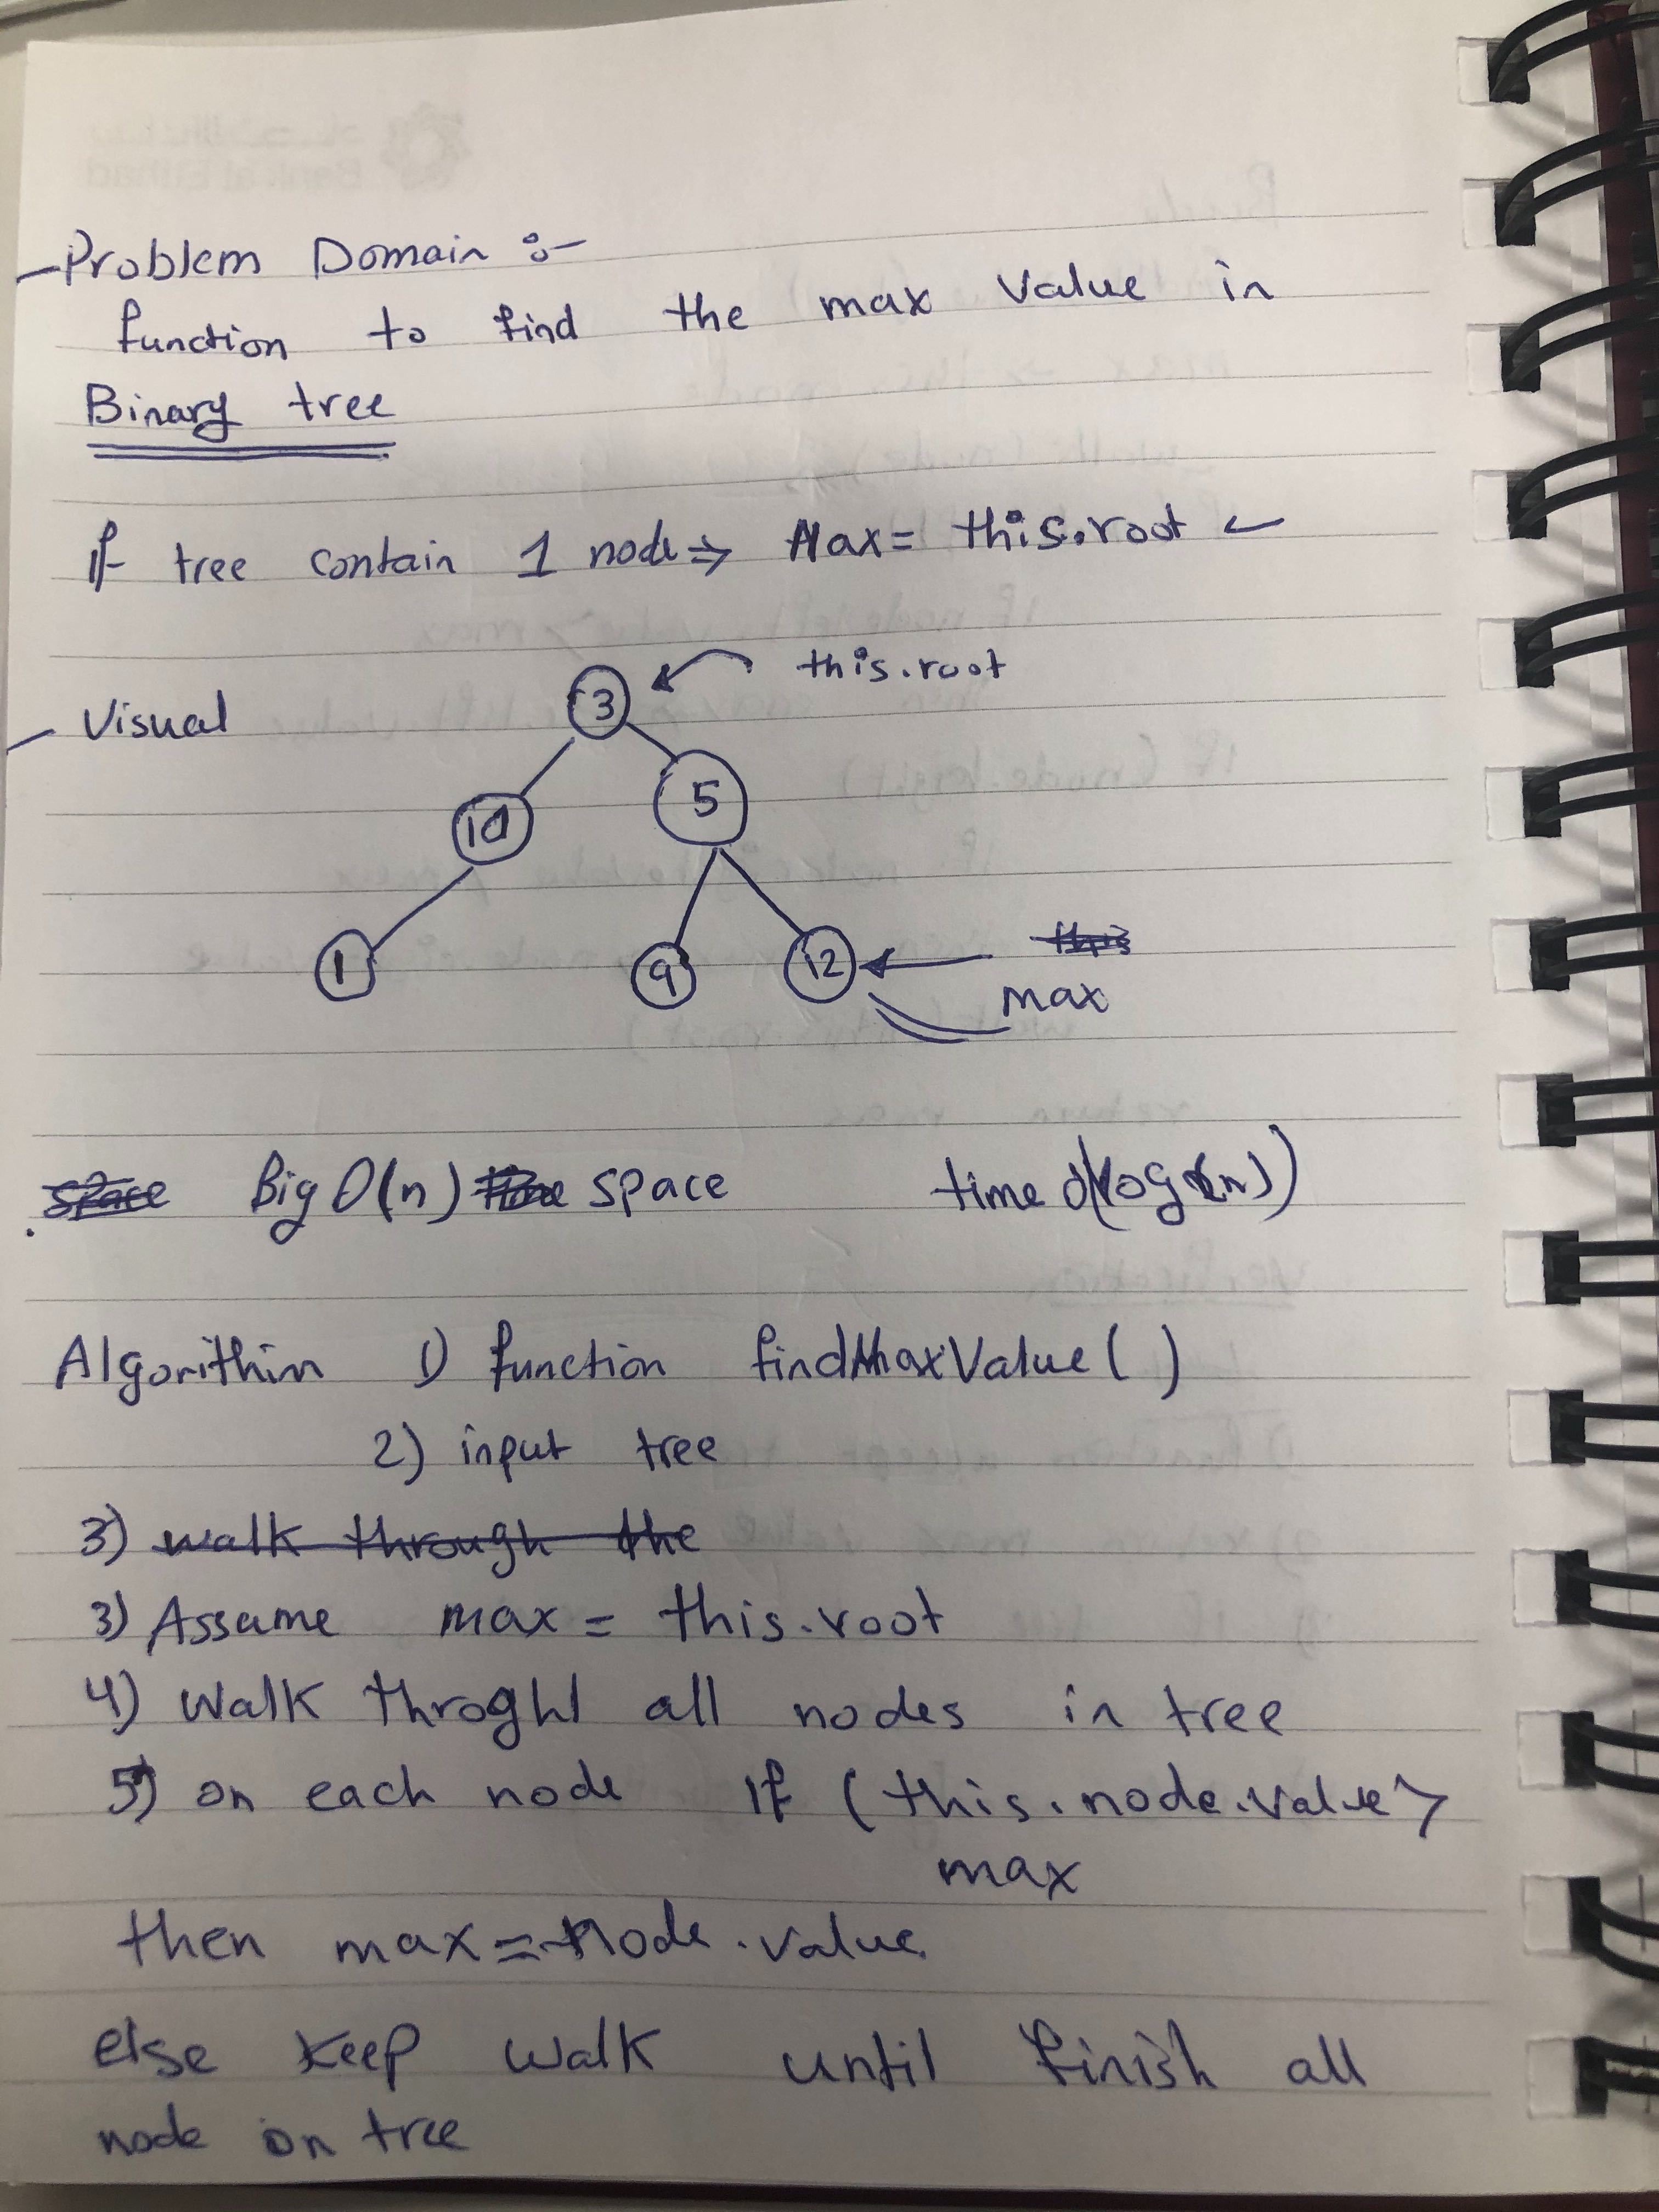 -Problem Domain :-
function to find the max value in
Binary tree
if tree contain 1 node => Max= this.root ←
this.root
- Visual
3
10
5
1
9
12
this
max
space Big O(n) time space time O(log(n))
Algorithim 1) function findMaxValue( )
2) input tree
3) walk through the
3) Assume max = this.root
4) Walk throghl all nodes in tree
5) on each node if (this.node.value >
max
then max = node.value
else keep walk until finish all
node on tree